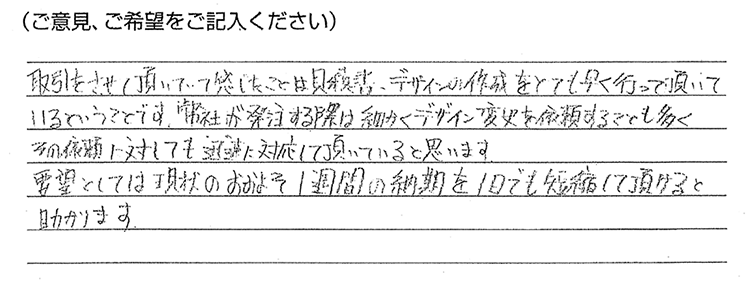 (ご意見、ご希望をご記入ください)
取引をさせて頂いていて感じたことは見積書、デザインの作成をとても早く行って頂いて
いるということです。弊社が発注する際は細かくデザイン変更を依頼することも多く
その依頼に対しても迅速に対応して頂いていると思います。
要望としては現状のおおよそ1週間の納期を1日でも短縮して頂けると
助かります。